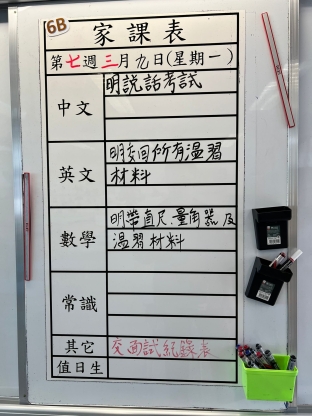 6B
家課表
第七週三月九日(星期一)
中文
明說話考試
英文
明交回所有溫習
材料
數學
明帶直尺、量角器及
溫習材料
常識
其它
交通試紀錄表
值日生